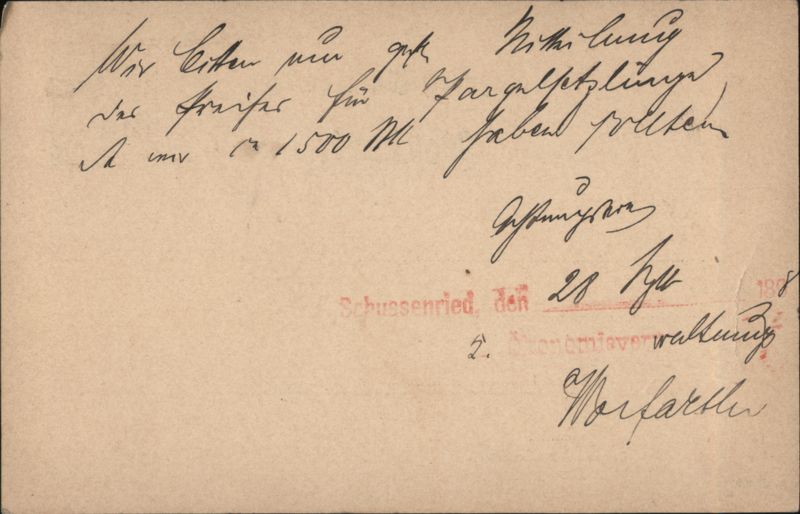 Wir bitten um gefl. Mitteilung
des Preises für Spargelsetzlinge,
da wir ca 1500 St haben sollten
Achtungsvoll
Schussenried, den 28 Sept 1898
K. Ökonomieverwaltung